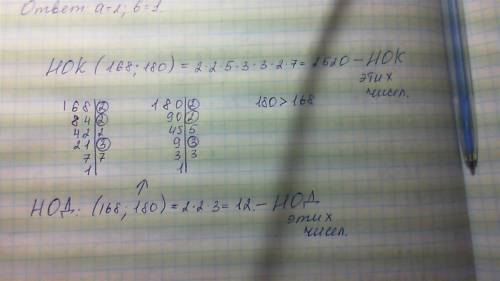 Ответ: a=2; b=1.
НОК (168; 180) = 2·2·5·3·3·2·7 = 2520 – НОК
этих
чисел.
168|2 180|2 180 > 168
84|2 90|2
42|2 45|5
21|3 9|3
7|7 3|3
1| 1|
↑
НОД: (168; 180) = 2·2·3 = 12. – НОД
этих
чисел.